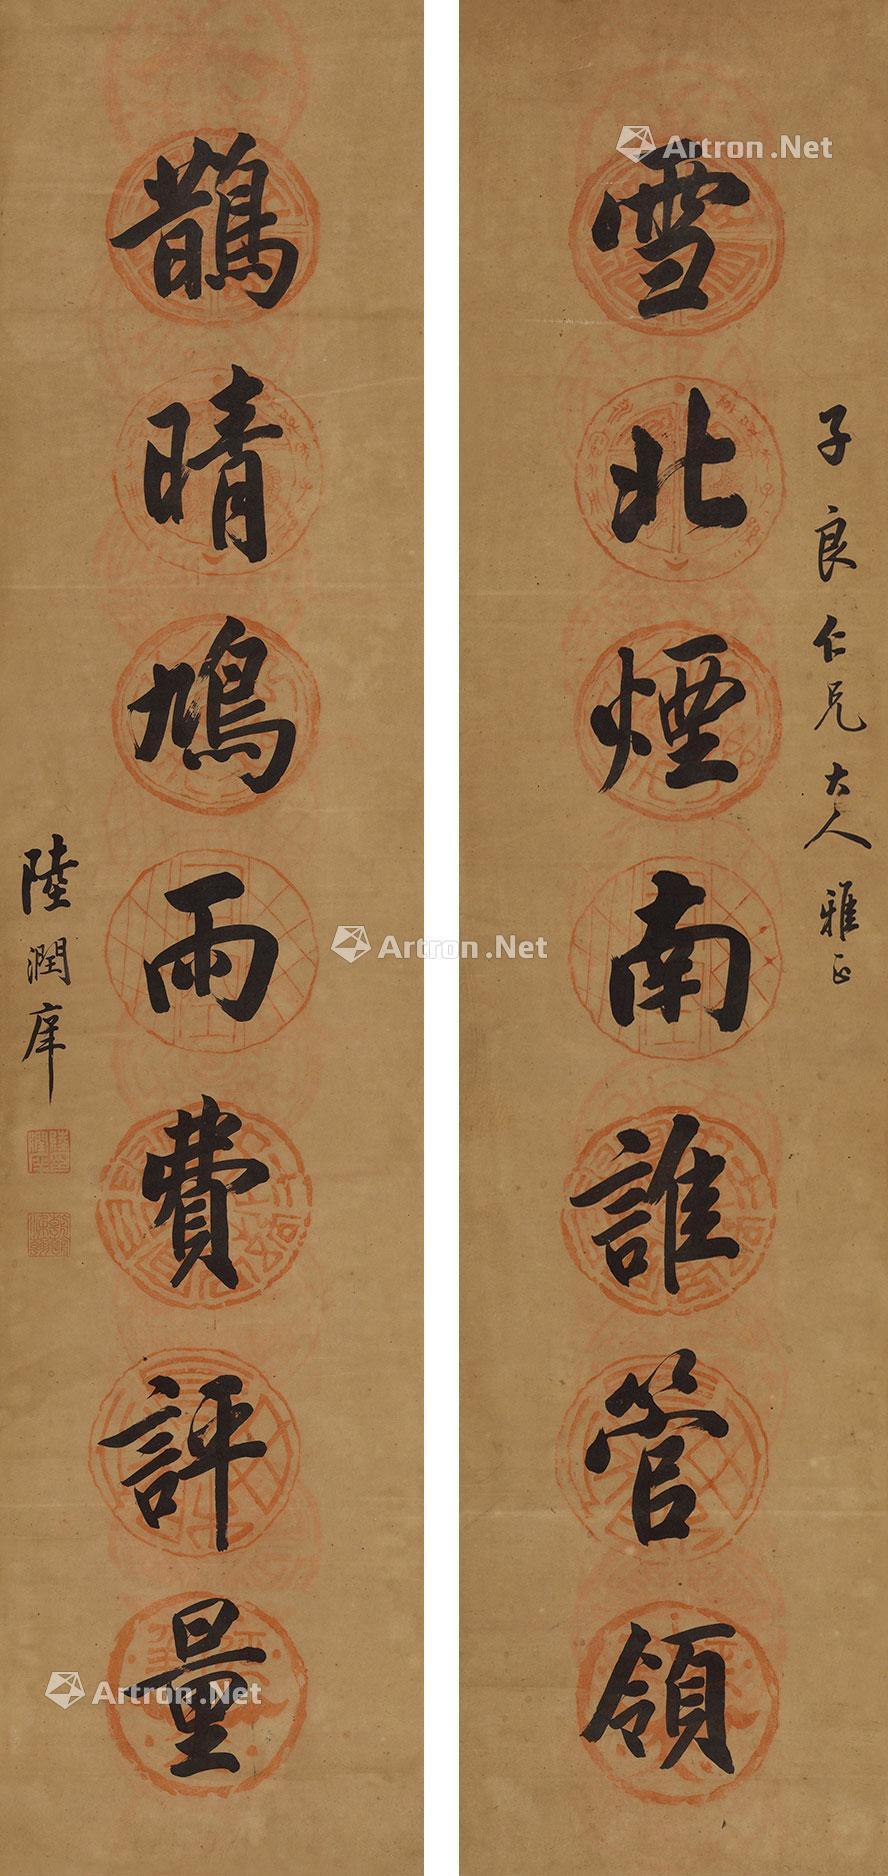 子良仁兄大人雅正
雪北煙南誰管領
鵲晴鳩雨費評量
陸潤庠
Artron.Net
Artron.Net
Artron.Net